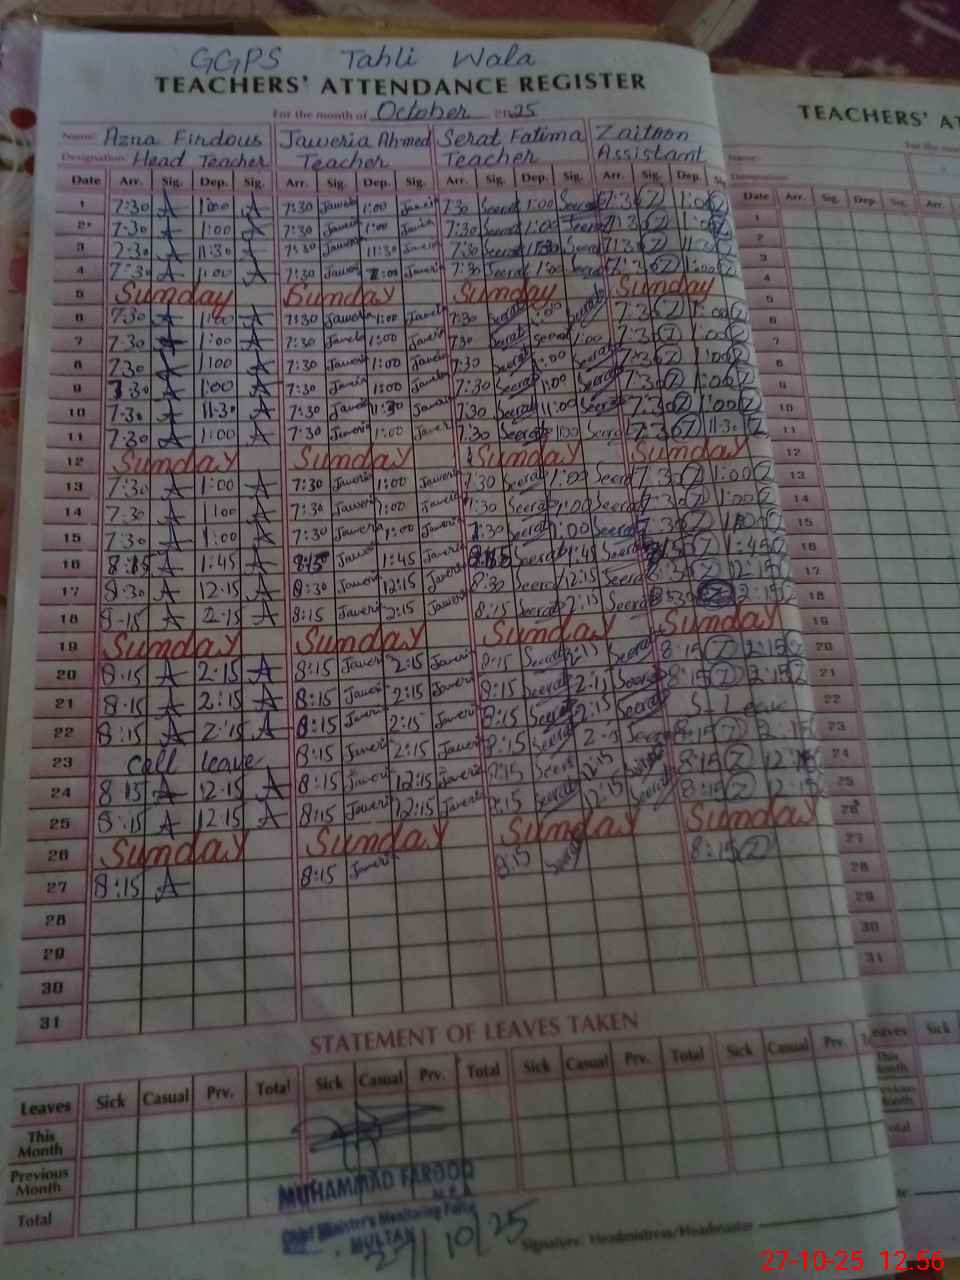 GGPS Tahli Wala
TEACHERS' ATTENDANCE REGISTER
For the month of October 2025
Name: Azna Findous Jaweria Ahmed Serat Fatima Zaitoon
Designation: Head Teacher Teacher Teacher Assistant
Date Arr. Sig. Dep. Sig. Arr. Sig. Dep. Sig. Arr. Sig. Dep. Sig. Arr. Sig. Dep.
1 7:30 A 1:00 A 7:30 1:00 7:30 Seerat 1:00 Seerat 7:30 Z 1:00 Z
2 7:30 A 1:00 A 7:30 1:00 7:30 Seerat 1:00 Seerat 7:30 Z 1:00 Z
3 7:30 A 11:30 A 7:30 11:30 7:30 Seerat 11:30 Seerat 7:30 Z
4 7:30 A 1:00 A 7:30 1:00 7:30 Seerat 1:00 Seerat 7:30 Z 1:00 Z
5 Sunday Sunday Sunday Sunday
6 7:30 A 1:00 A 7:30 1:00 7:30 Seerat 1:00 Seerat 7:30 Z 1:00 Z
7 7:30 A 1:00 A 7:30 1:00 7:30 Seerat 1:00 7:30 Z 1:00 Z
8 7:30 A 1:00 A 7:30 1:00 7:30 Seerat 1:00 Seerat 7:30 Z 1:00 Z
9 7:30 A 1:00 A 7:30 1:00 7:30 Seerat 1:00 Seerat 7:30 Z 1:00 Z
10 7:30 A 11:30 A 7:30 11:30 7:30 Seerat 11:00 Seerat 7:30 Z 1:00 Z
11 7:30 A 1:00 A 7:30 1:00 7:30 Seerat 1:00 Seerat 7:30 Z 11:30 Z
12 Sunday Sunday Sunday Sunday
13 7:30 A 1:00 A 7:30 1:00 7:30 Seerat 1:00 Seerat 7:30 Z 1:00 Z
14 7:30 A 1:00 A 7:30 1:00 7:30 Seerat 1:00 Seerat 7:30 Z 1:00 Z
15 7:30 A 1:00 A 7:30 1:00 7:30 Seerat 1:00 Seerat 7:30 Z 1:00 Z
16 8:15 A 1:45 A 8:15 1:45 8:15 Seerat 1:45 Seerat Z 1:45 Z
17 8:30 A 12:15 A 8:30 12:15 8:30 Seerat 12:15 Seerat 8:30 Z 12:15 Z
18 8:15 A 2:15 A 8:15 2:15 8:15 Seerat 2:15 Seerat 2:15 Z
19 Sunday Sunday Sunday Sunday
20 8:15 A 2:15 A 8:15 2:15 8:15 Seerat Seerat 8:15 Z 2:15 Z
21 8:15 A 2:15 A 8:15 2:15 8:15 Seerat 2:15 Seerat 8:15 Z 2:15 Z
22 8:15 A 2:15 A 8:15 2:15 8:15 Seerat 2:15 Seerat Leave
23 leave 8:15 2:15 8:15 Seerat 2:15 Seerat 8:15 Z 2:15
24 8:15 A 12:15 A 8:15 12:15 8:15 Seerat 12:15 Seerat 8:15 Z 12:15
25 8:15 A 12:15 A 8:15 12:15 8:15 Seerat 12:15 Seerat 8:15 Z 12:15
26 Sunday Sunday Sunday Sunday
27 8:15 A 8:15 8:15 Seerat 8:15 Z
28
29
30
31
STATEMENT OF LEAVES TAKEN
Leaves Sick Casual Prv. Total Sick Casual Prv. Total Sick Casual Prv. Total Sick Casual Prv.
This Month
Previous Month
Total
MUHAMMAD FAROOQ
M.E.A
Chief Minister's Monitoring Force
MULTAN
27/10/25
Signature: Headmistress/Headmaster
TEACHERS' AT
Name:
Designation:
Date Arr. Sig. Dep. Sig. Arr.
1
2
3
4
5
6
7
8
9
10
11
12
13
14
15
16
17
18
19
20
21
22
23
24
25
26
27
28
29
30
31
Leaves Sick
27-10-25 12:56